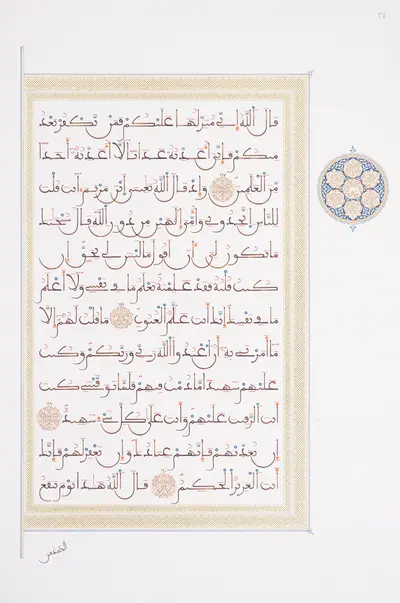 قال الله إني منزلها عليكم فمن يكفر بعد
منكم فإني أعذبه عذابا لا أعذبه أحدا
من العلمين وإذ قال الله يعيسى ابن مريم أنت قلت
للناس اتخذوني وأمي إلهين من دون الله قال سبحنك
ما يكون لي أن أقول ما ليس لي بحق إن
كنت قلته فقد علمته تعلم ما في نفسي ولا أعلم
ما في نفسك إنك أنت علم الغيوب ما قلت لهم إلا
ما أمرتني به أن اعبدوا الله ربي وربكم وكنت
عليهم شهيدا ما دمت فيهم فلما توفيتني كنت
أنت الرقيب عليهم وأنت على كل شيء شهيد
إن تعذبهم فإنهم عبادك وإن تغفر لهم فإنك
أنت العزيز الحكيم قال الله هذا يوم ينفع
الصدقين